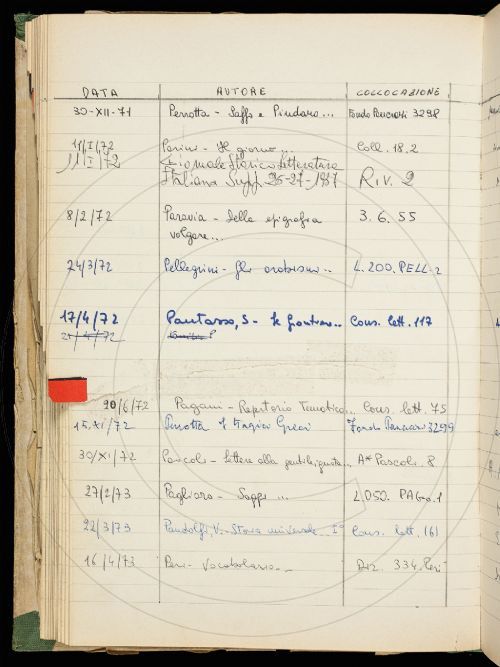 DATA AUTORE COLLOCAZIONE
30-XII-71 Perrotta - Saffo e Pindaro... Fondo Pancrazi 3298
11/I/72 Parini - Il giorno... Coll. 18.2
11/I/72 Giornale Storico Letteratura
Italiana Suppl. 26-27-1937 Riv. 2
8/2/72 Paravia - Della epigrafia 3.6.55
volgare...
24/3/72 Pellegrini - Gli arabismi... L. 200. PELL-2
17/4/72 Pautasso, S - Le frontiere... Cons. lett. 117
21/4/72
20/6/72 Pagani - Repertorio Tematico... Cons. lett. 75
15/XI/72 Perrotta I tragici Greci Fondo Pancrazi 3299
30/XI/72 Pascoli - Lettere alla gentile ignota... A* Pascoli. 8
27/2/73 Pagliaro - Saggi ... L.050. PAG.1
22/3/73 Pandolfi, V. - Storia universale I° Cons. lett. 161
16/4/73 - Vocabolario... Diz. 334.